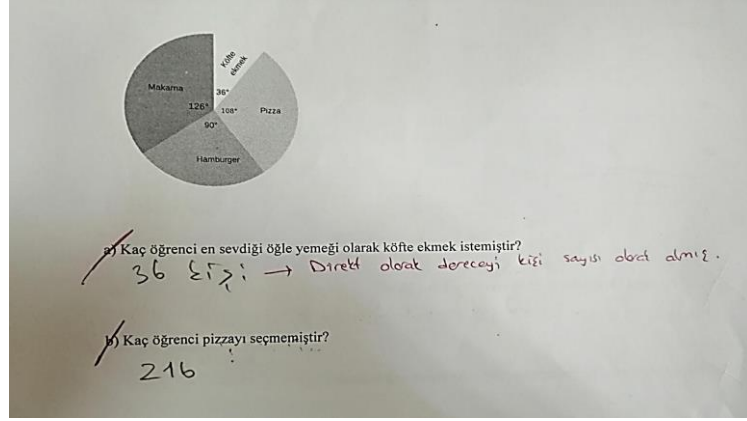 Köfte
ekmek
Makarna
36°
126°
108°
Pizza
90°
Hamburger
a) Kaç öğrenci en sevdiği öğle yemeği olarak köfte ekmek istemiştir?
36 kişi → Direkt olarak dereceyi kişi sayısı olarak almış.
b) Kaç öğrenci pizzayı seçmemiştir?
216